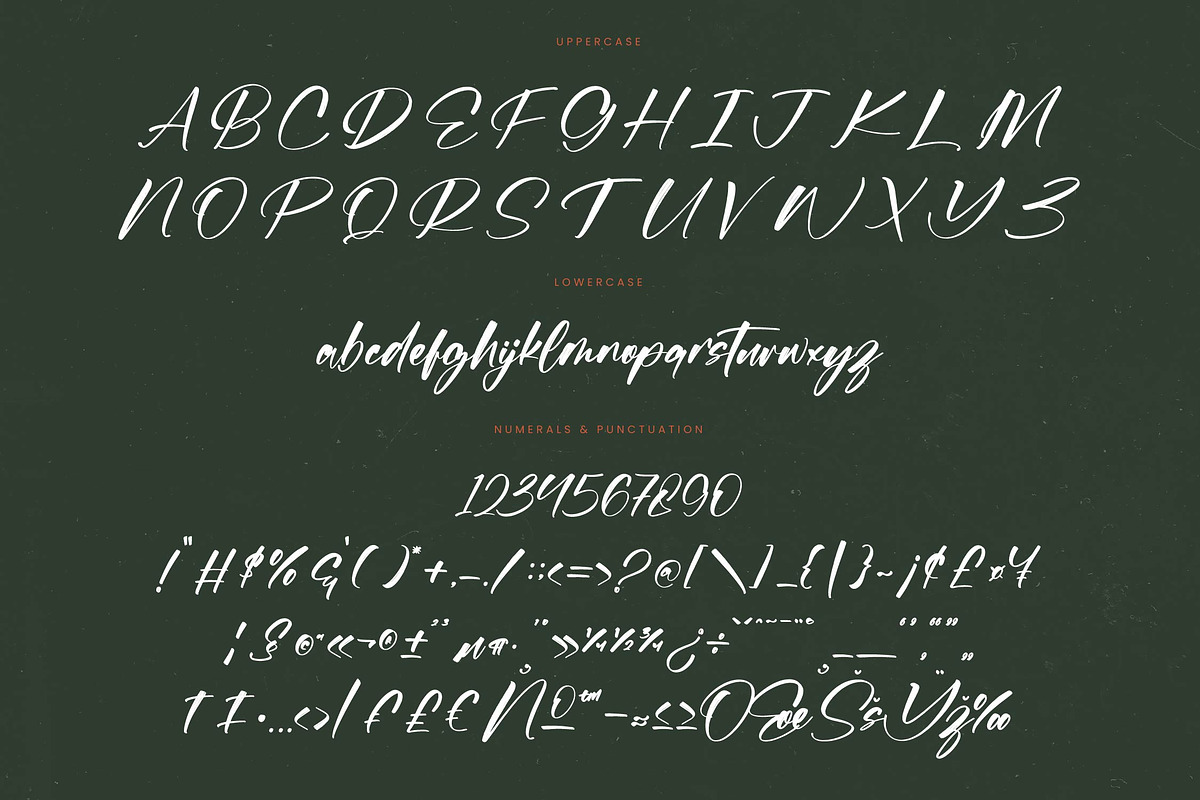 UPPERCASE
ABCDEFGHIJKLM
NOPQRSTUVWXYZ
LOWERCASE
abcdefghijklmnopqrstuvwxyz
NUMERALS & PUNCTUATION
1234567890
!"#$%&'()*+,-./:;<=>?@[\]_{|}~¡¢£¤¥
¦§©¨«¬®±²³µ¶·¹º»¼½¾¿÷ˇ^~–"° ‘’“”‚„
†‡•…‹›/₣£€№™−≈≤≥ŒœŠšŸž‰